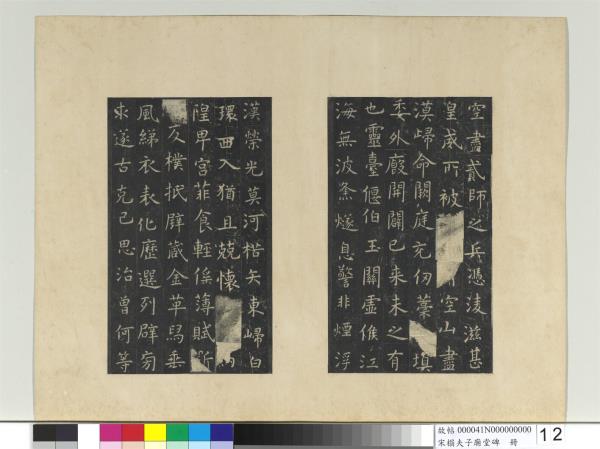 空盡貳師之兵憑淩滋甚
皇威所被空山盡
漠歸命闕庭充仞藁填
委外廄開闢已來未之有
也靈臺偃伯玉關虛候江
海無波烽燧息警非煙浮
漢榮光莫河楛矢東歸白
環西入猶且兢懷
隍卑宮菲食輕徭薄賦斲
反樸抵璧藏金革舄垂
風綈衣表化歷選列辟旁
求遂古克己思治曾何等
故帖 000041N000000000
宋搨夫子廟堂碑 冊
12